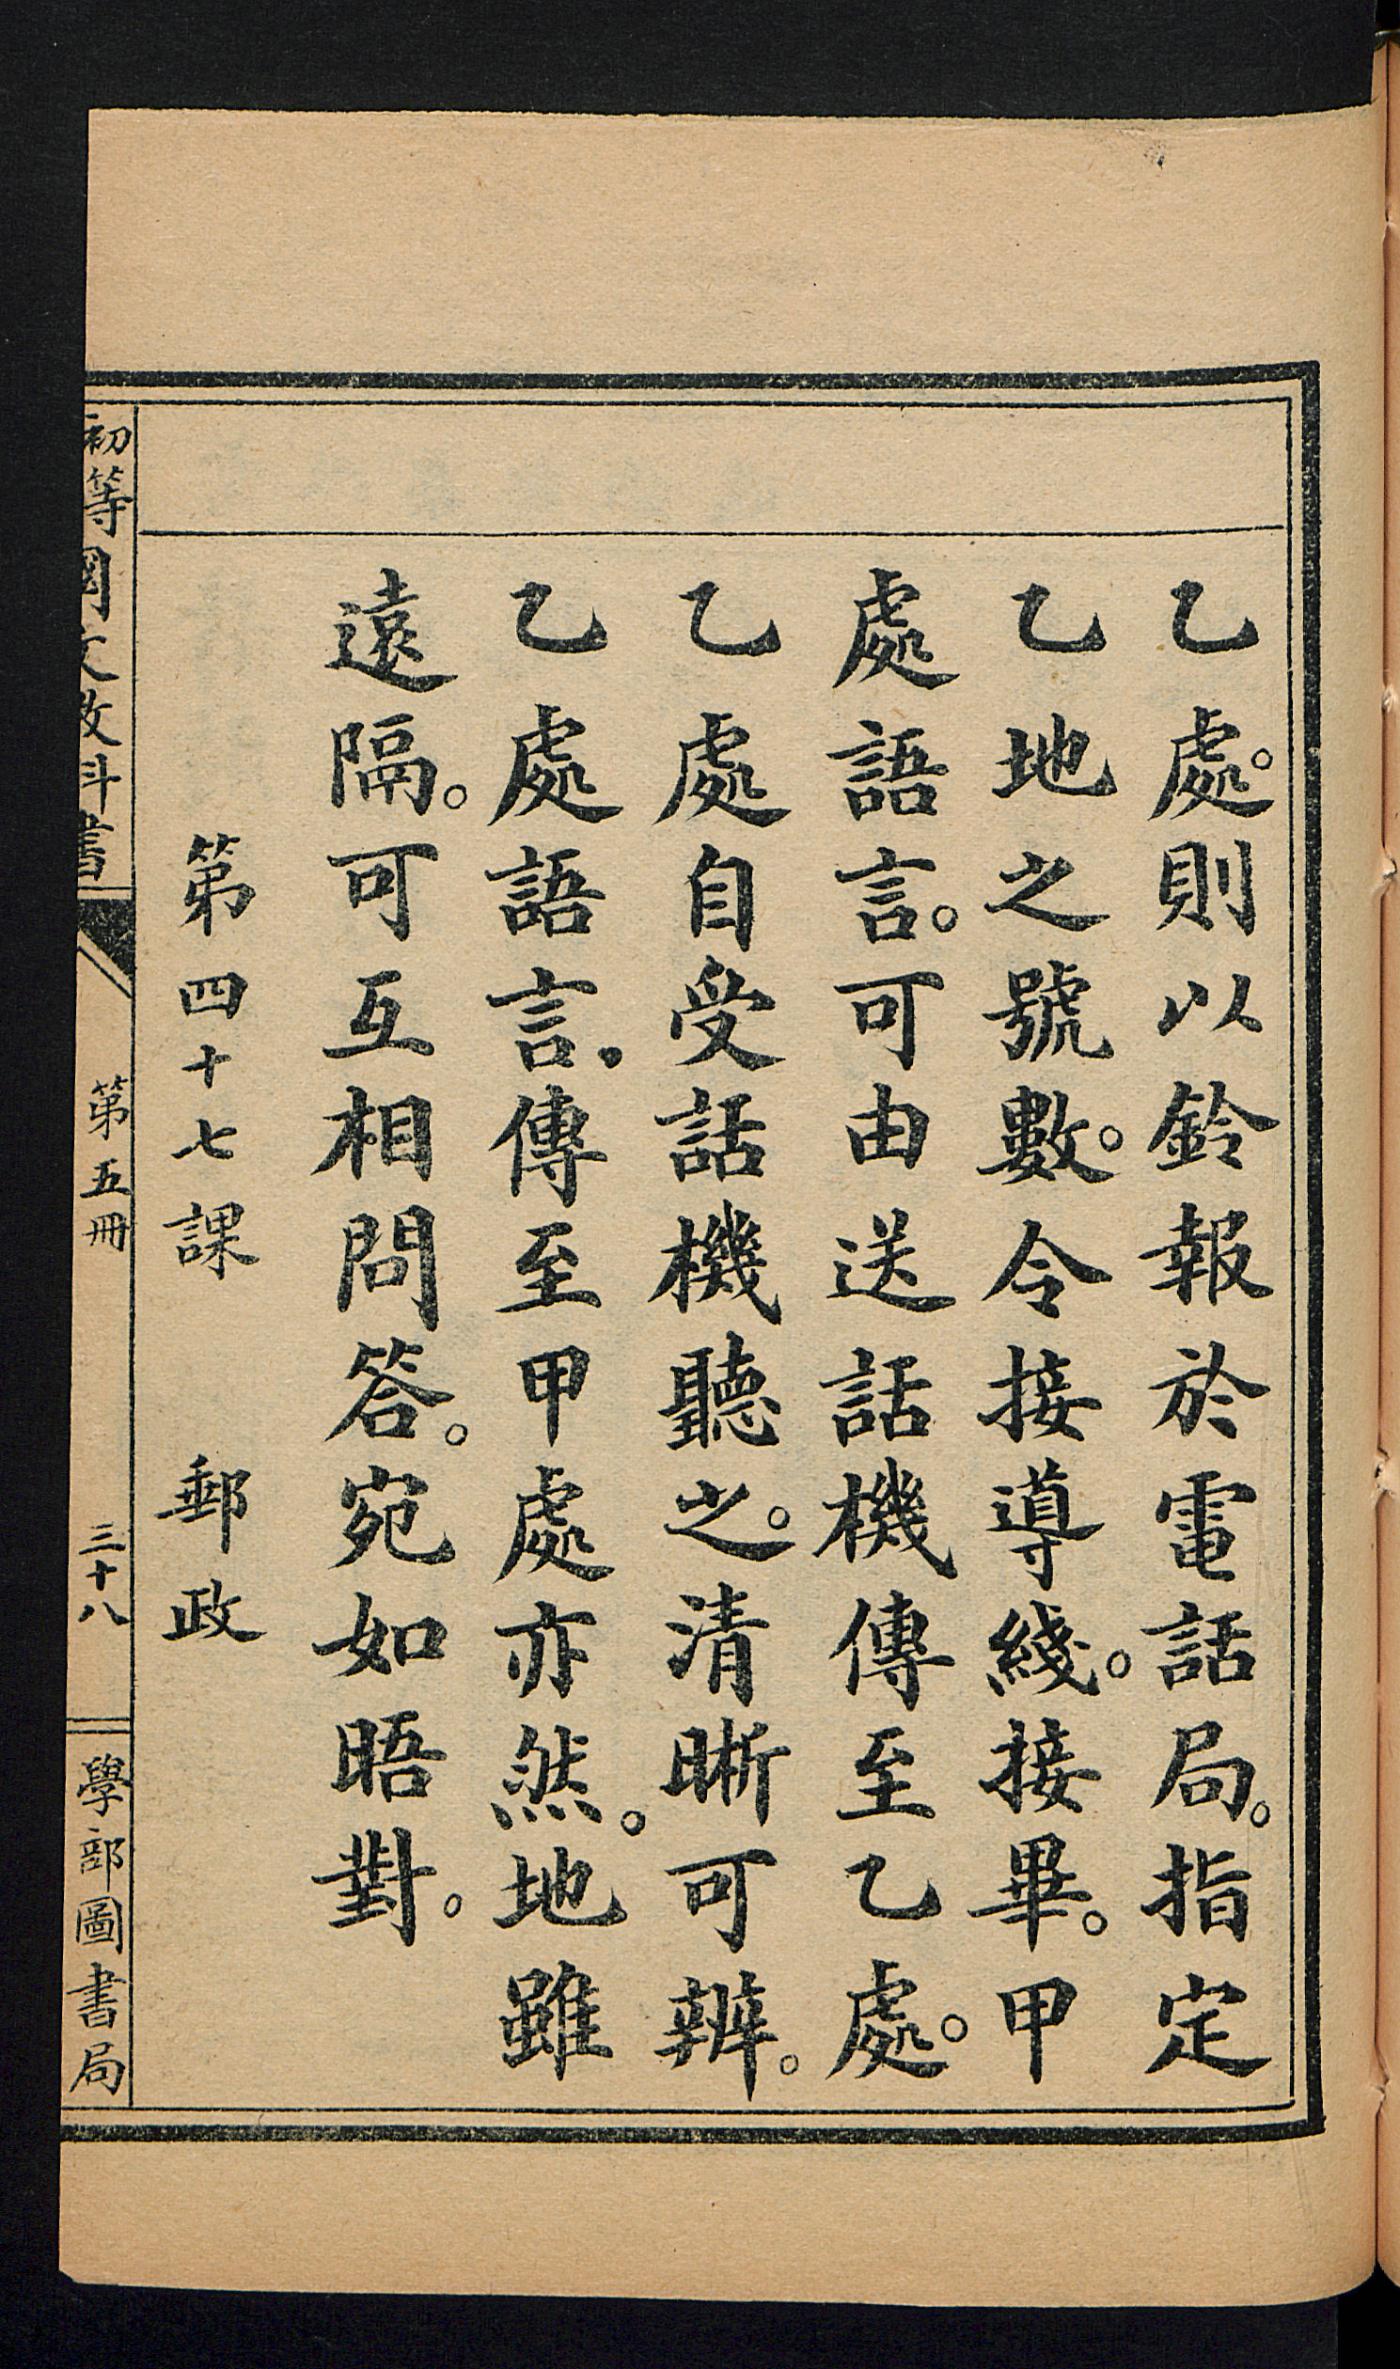 乙處。則以鈴報於電話局。指定
乙地之號數。令接導綫。接畢。甲
處語言。可由送話機傳至乙處。
乙處自受話機聽之。清晰可辨。
乙處語言.傳至甲處亦然。地雖
遠隔。可互相問答。宛如晤對。
第四十七課　郵政
初等國文教科書　第五冊　三十八　學部圖書局